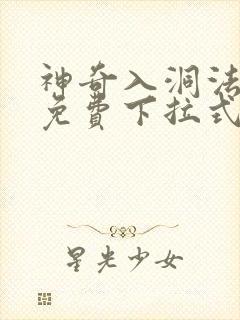 神奇入洞法
免費下拉式
星光少女